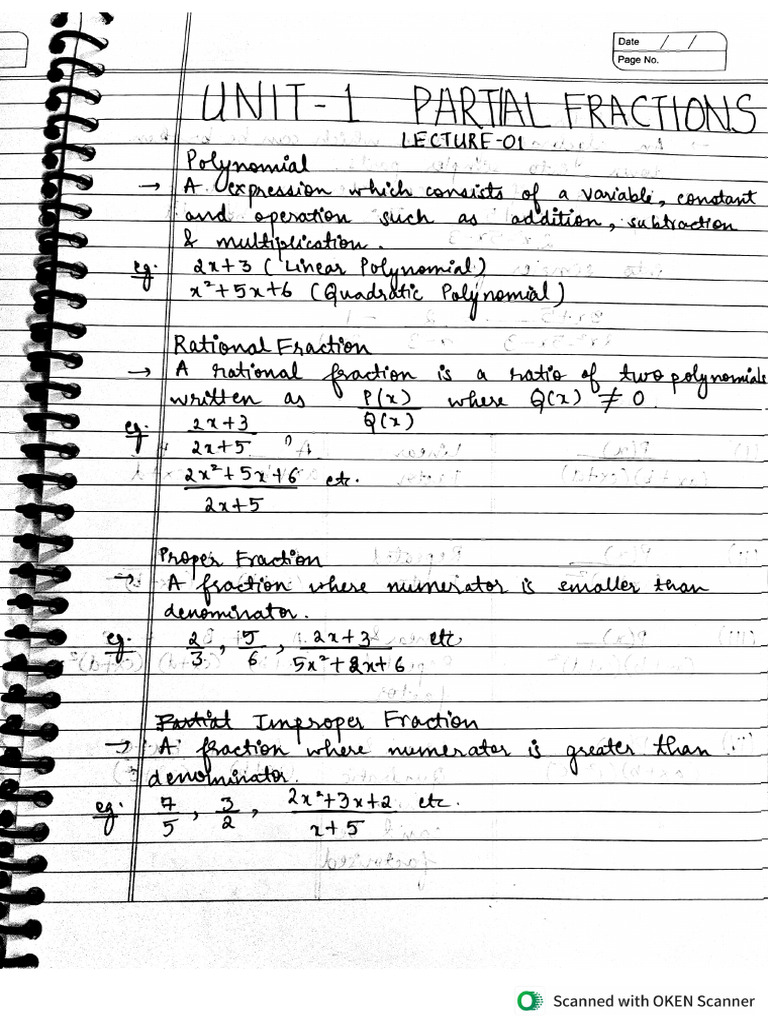 Date / /
Page No.
UNIT-1 PARTIAL FRACTIONS
LECTURE-01
Polynomial
→ A expression which consists of a variable, constant
and operation such as addition, subtraction
& multiplication.
eg: 2x+3 (Linear Polynomial)
x²+5x+6 (Quadratic Polynomial)
Rational Fraction
→ A rational fraction is a ratio of two polynomials
written as P(x)/Q(x) where Q(x) ≠ 0.
eg: (2x+3)/(2x+5),
(2x²+5x+6)/(2x+5) etc.
Proper Fraction
→ A fraction where numerator is smaller than
denominator.
eg: 2/3, 5/6, (2x+3)/(5x²+2x+6) etc
Partial Improper Fraction
→ A fraction where numerator is greater than
denominator.
eg: 7/5, 3/2, (2x²+3x+2)/(x+5) etc.
Scanned with OKEN Scanner